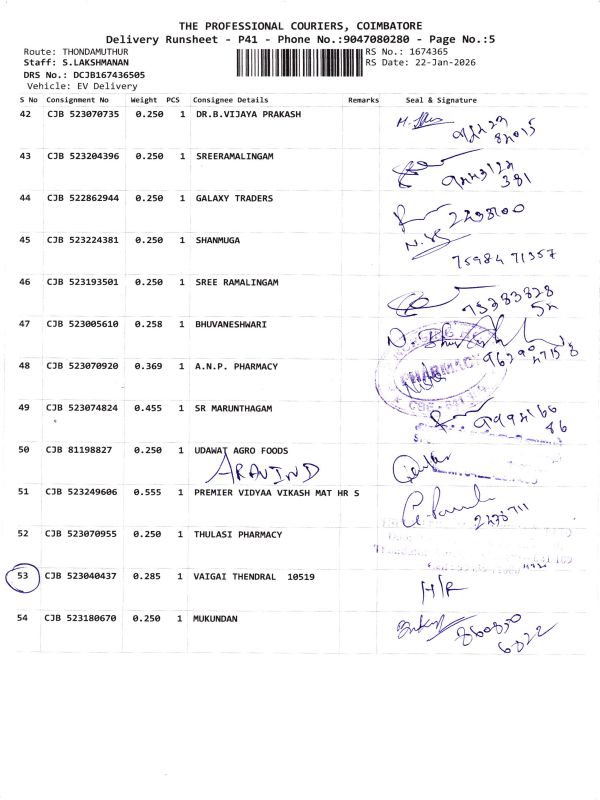 THE PROFESSIONAL COURIERS, COIMBATORE
Delivery Runsheet - P41 - Phone No.:9047080280 - Page No.:5
Route: THONDAMUTHUR RS No.: 1674365
Staff: S.LAKSHMANAN RS Date: 22-Jan-2026
DRS No.: DCJB167436505
Vehicle: EV Delivery
S No Consignment No Weight PCS Consignee Details Remarks Seal & Signature
42 CJB 523070735 0.250 1 DR.B.VIJAYA PRAKASH
43 CJB 523204396 0.250 1 SREERAMALINGAM
381
44 CJB 522862944 0.250 1 GALAXY TRADERS
45 CJB 523224381 0.250 1 SHANMUGA
75984 71357
46 CJB 523193501 0.250 1 SREE RAMALINGAM
47 CJB 523005610 0.258 1 BHUVANESHWARI
48 CJB 523070920 0.369 1 A.N.P. PHARMACY
PHARMACY
49 CJB 523074824 0.455 1 SR MARUNTHAGAM
86
50 CJB 81198827 0.250 1 UDAWAT AGRO FOODS
ARAVIND
51 CJB 523249606 0.555 1 PREMIER VIDYAA VIKASH MAT HR S
52 CJB 523070955 0.250 1 THULASI PHARMACY
53 CJB 523040437 0.285 1 VAIGAI THENDRAL 10519 H/R
54 CJB 523180670 0.250 1 MUKUNDAN
860850
6822